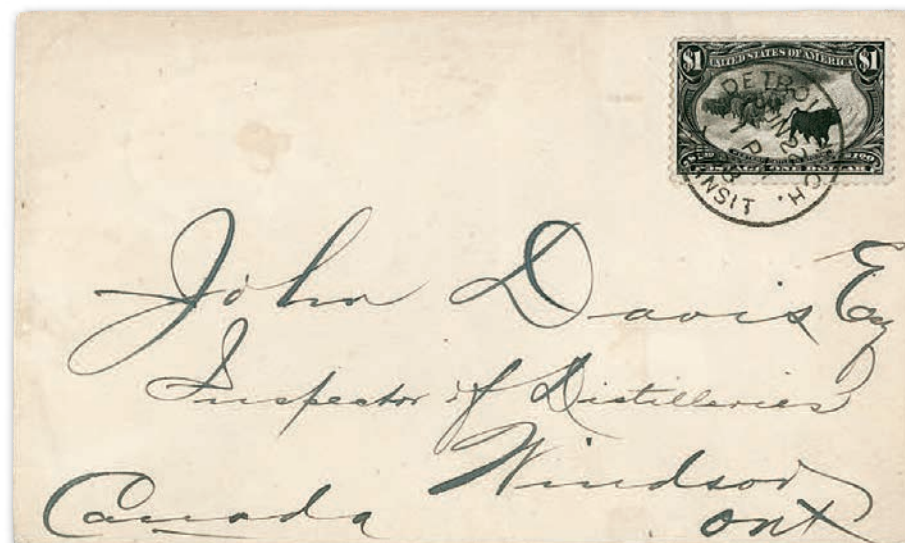 $1 UNITED STATES OF AMERICA $1
DETROIT MICH. TRANSIT
JUN 22
ONE DOLLAR
John Davis Esq
Inspector of Distilleries
Windsor
Canada Ont